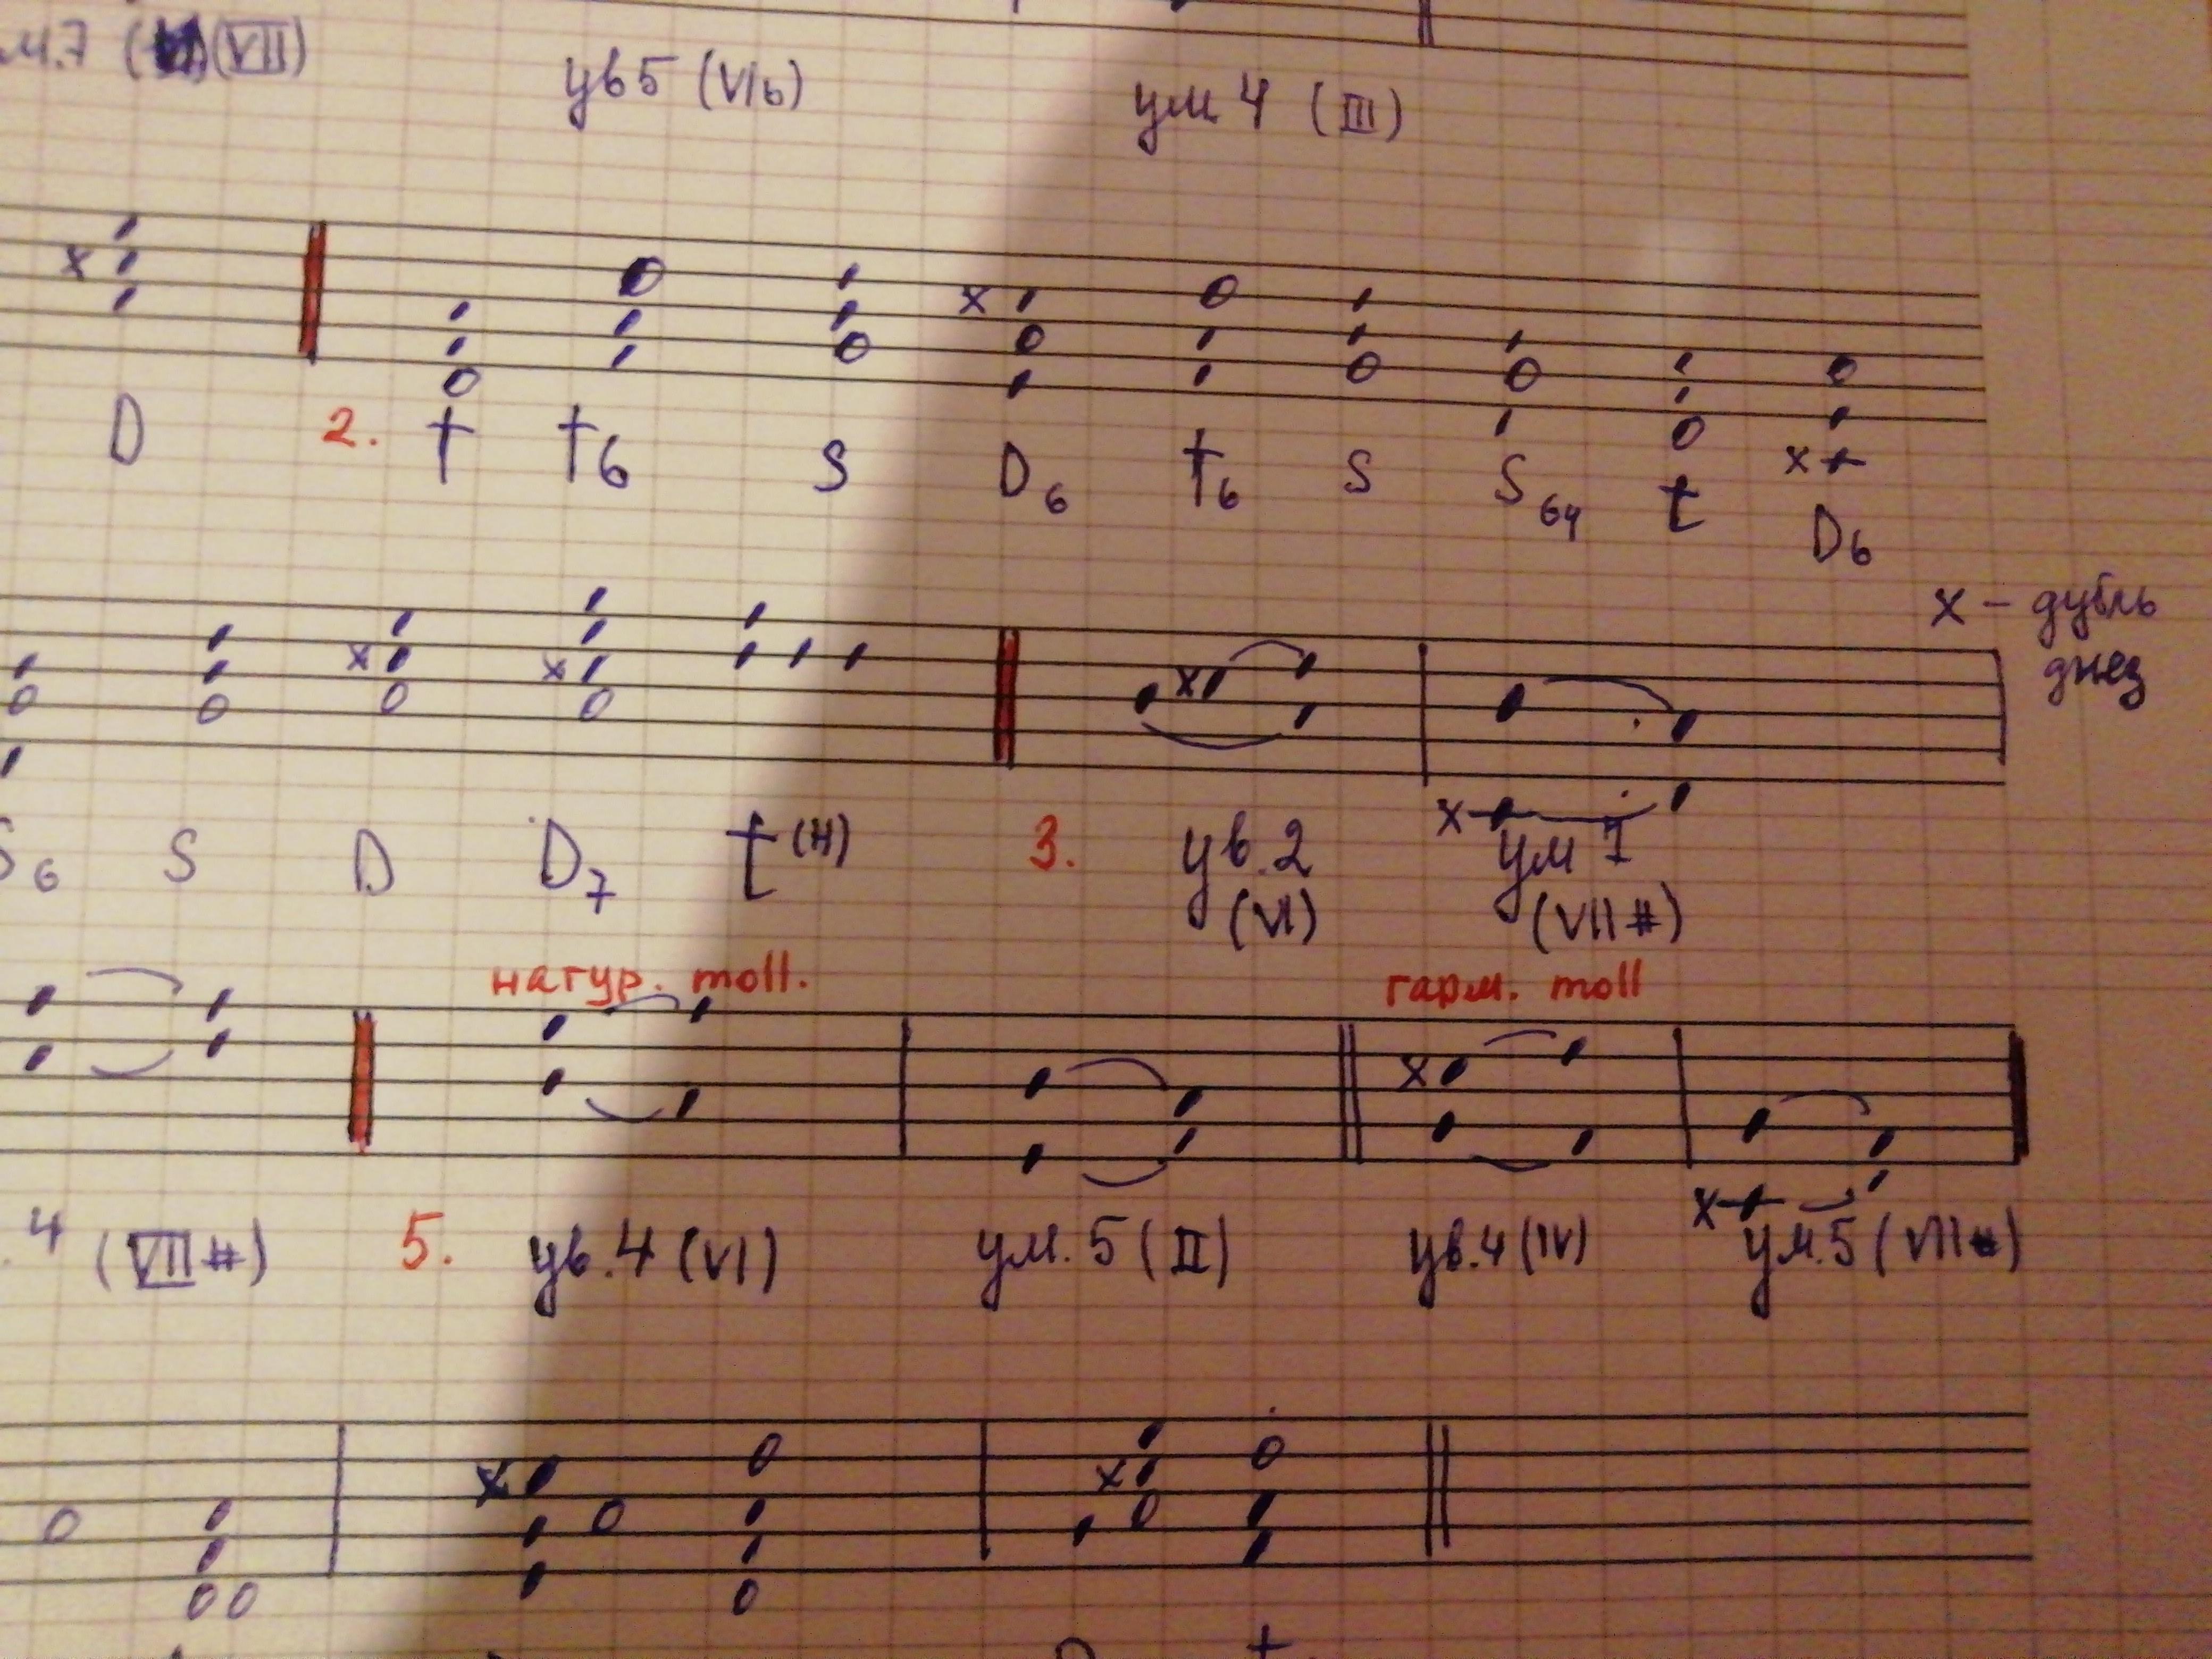 м.7 (VII) ув5 (VIb) ум 4 (III)
D 2. t t6 S D6 t6 S S64 t D6
x – дубль
диез
S6 S D D7 t(н) 3. ув.2 ум 7
(VI) (VII#)
натур. moll. гарм. moll
4 (VII#) 5. ув.4 (VI) ум. 5 (II) ув.4 (IV) ум.5 (VII#)
t